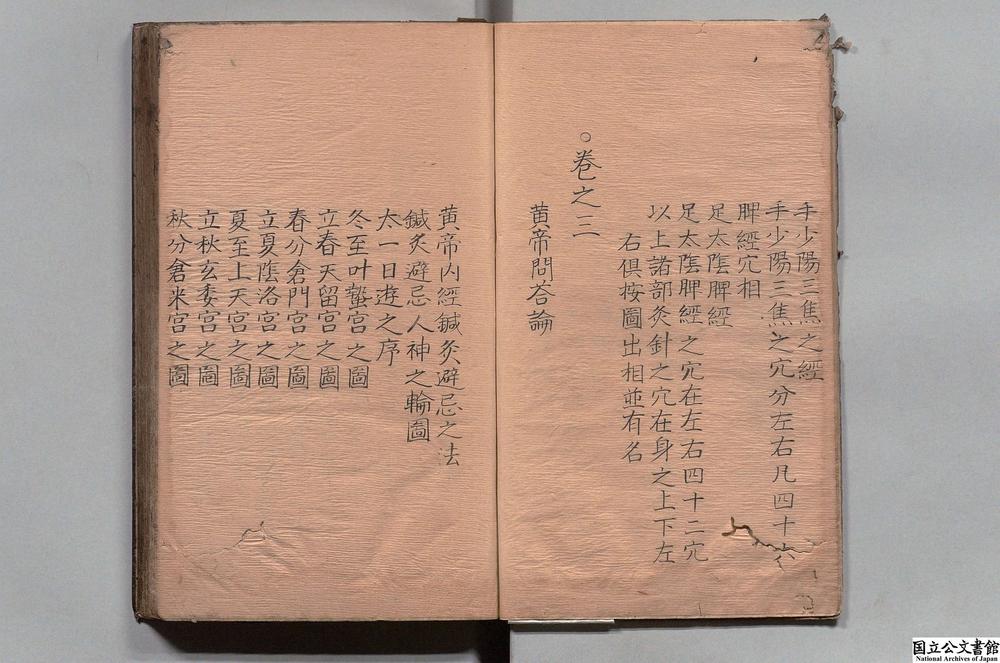 手少陽三焦之經
手少陽三焦之穴分左右凡四十六
脾經穴相
足太陰脾經
足太陰脾經之穴在左右四十二穴
以上諸部灸針之穴在身之上下左
右俱按圖出相並有名
○卷之三
黄帝問荅論
黄帝内經鍼灸避忌之法
鍼灸避忌人神之輪圖
太一日遊之序
冬至叶蟄宮之圖
立春天留宮之圖
春分倉門宮之圖
立夏陰洛宮之圖
夏至上天宮之圖
立秋玄委宮之圖
秋分倉米宮之圖
国立公文書館
National Archives of Japan